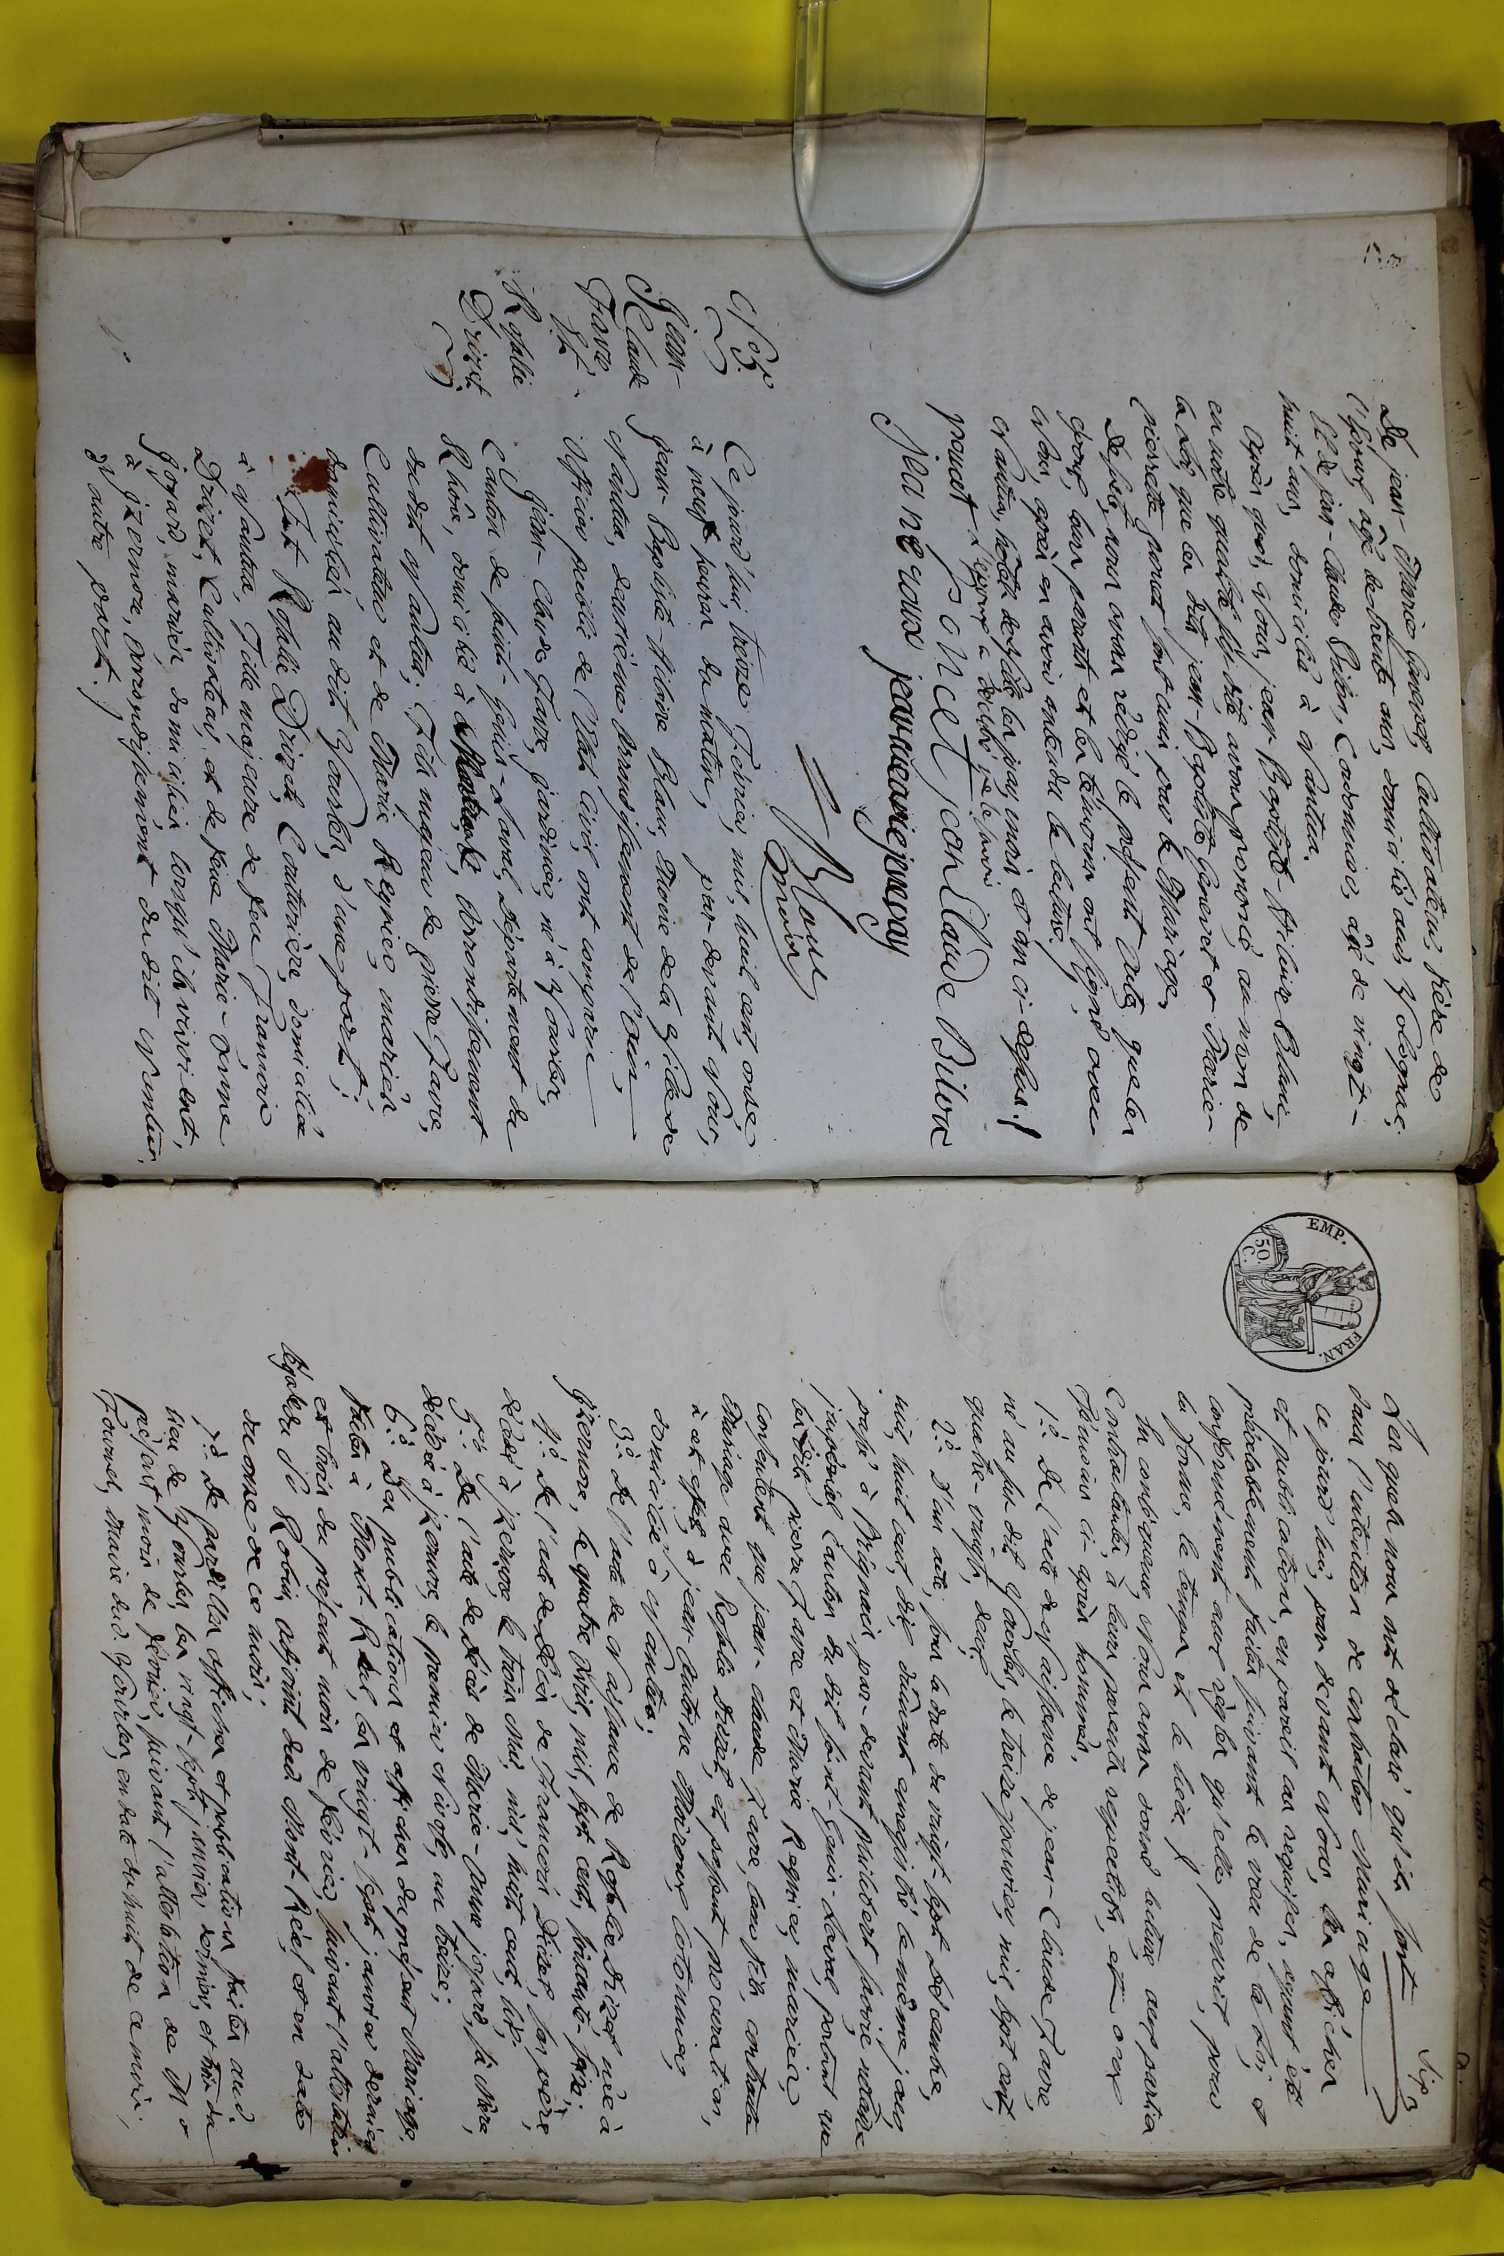 De jean-Marie Genevet, Cultivateur, frère de
l'Epoux, âgé de trente ans, domicilié aud. Vologna;
Et de jean-Claude Bilon, Cordonnier, âgé de vingt-
huit ans, domicilié à Nantua.
Après quoi, Nous, jean-Baptiste-Hilaire Blanc,
en notre qualité susdite avons prononcé, au nom de
la Loi, que les dits jean-Baptiste Genevet et Marie-
pierrette ponat sont unis par le Mariage.
De plus, nous avons rédigé le présent Acte, que les
époux, leurs parents et les témoins ont signé avec
Nous, après en avoir entendu la lecture,
Nantua, hôtel de Ville les jour, mois et an ci-dessus./
ponat L'épouse a déclaré ne le savoir
ponet jean Claude Bilon
jean jean marie
Blanc
maire
N.o 3.
Jean-
Claude
Favre
Et
Rosalie
Drizet.
Ce jourd'hui, treize Février, mil, huit cent, onze,
à neuf heures du matin, par-devant Nous,
jean-Baptiste-Hilaire Blanc, Maire de la Ville de
Nantua, deuxième arrondissement de l'Ain,
officier public de l'Etat Civil, ont comparu
Jean-Claude Favre, jardinier, né à Vourles,
Canton de saint-Genis-Laval, Département du
Rhône, domicilié à Arrondissement
dudit Nantua; Fils majeur de pierre Favre,
Cultivateur et de Marie Regnier, mariés,
domiciliés, au dit Vourles, d'une part;
Et Rosalie Drizet, Couturière, domiciliée
à Nantua, Fille majeure de feu François
Drizet, Cultivateur, et de feue Marie-Anne
joyard, mariés, domiciliés lorsqu'ils vivoient,
à jzernore, arrondissement du dit Nantua,
D'autre part./
Six
Les quels nous ont déclaré qu'ils sont
dans l'intention de contracter Mariage
ce jourd'hui, par devant Nous, les affiches
et publications, en pareil cas requises, ayant été
préalablement faites suivant le vœu de la Loi, et
conformément aux règles qu'elle prescrit, pour
la forme, le temps et le lieu./
En conséquence, Nous avons donné lecture, aux parties
Contractantes, à leurs parents respectifs, et aux
Témoins ci-après nommés,
1.o De l'acte de Naissance de jean-Claude Favre,
né au sus dit Vourles, le treize janvier, mil, sept cent,
quatre-vingt, deux;
2.o D'un acte, sous la date du vingt-sept Décembre,
mil, huit cent, dix, dûment enregistré le même jour,
passé à Brignais par-devant philibert notaire
impérial, Canton du dit saint-Genis-Laval, portant que
les dits pierre Favre et Marie Regnier, mariés,
consentent que jean-Claude Favre, leur fils, contracte
Mariage avec Rosalie Drizet, et passent procuration,
à cet effet, à jean-Antoine Cotonnier,
domicilié à Nantua;
3.o De l'acte de Naissance de Rosalie Drizet née à
jzernore, le quatre Avril, mil, sept cent, soixante-
4.o De l'acte de Décès de François Drizet, son père,
décédé à jzernore, le trois Mai, mil, huit cent, six;
5.o De l'acte de Décès de Marie-Anne joyard, sa Mère,
décédée à jzernore, le premier Nivôse, an treize;
6.o Des publications et affiches du présent Mariage,
faites à Mont-Réal, les vingt-sept janvier dernier
et trois du présent mois de février, suivant l'attestation
légale du S.r Robin, adjoint dud. Mont-Réal, et en date
du onze de ce mois;
7.o De pareilles affiches et publications faites aud.
lieu de Vourles, les vingt-sept janvier dernier, et trois du
présent mois de février, suivant l'attestation de M.r
Fournel, Maire dud. Vourles, en date du huit de ce mois;
EMP. FRAN.
50 C.